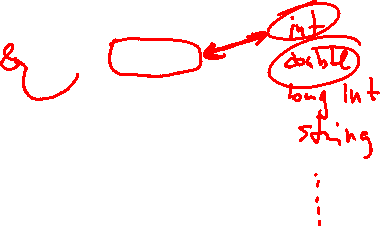 int
double
long int
string